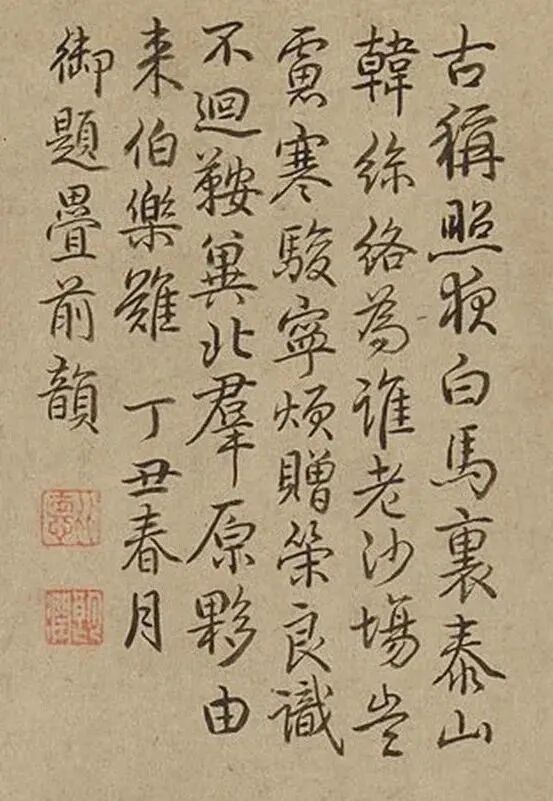 古稱照夜白馬裏泰山
韓絲絡為誰老沙塲豈
慮寒駿寧煩贈策良識
不迴鞍冀北羣原夥由
来伯樂難 丁丑春月
御題疊前韻